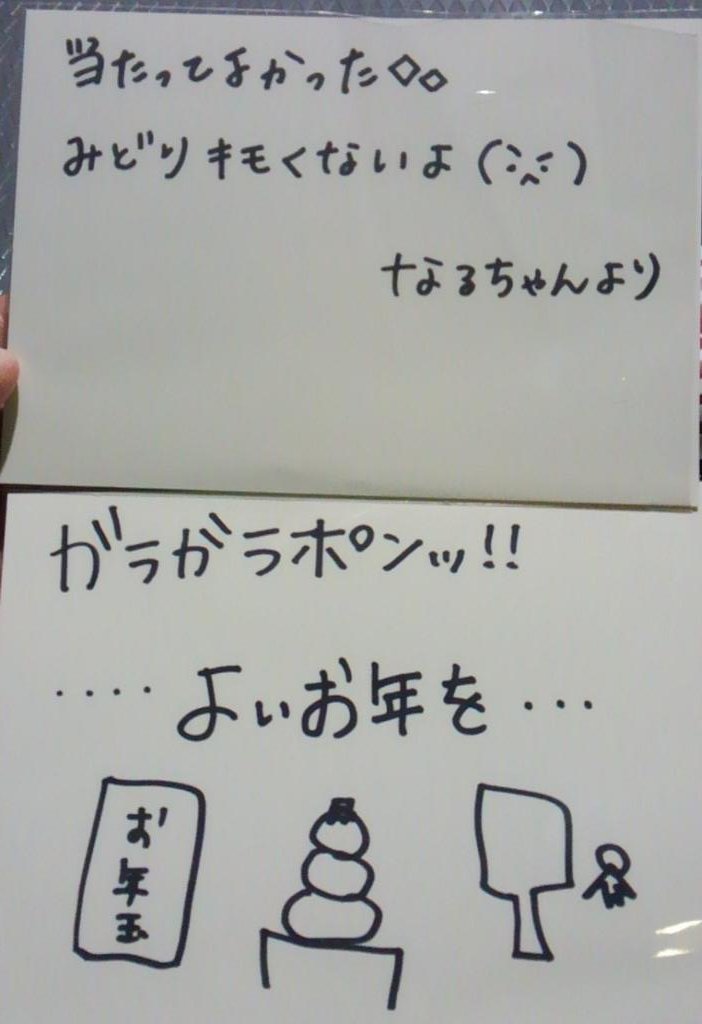 当たってよかった◇◇
みどりキモくないよ(;ﾟ^ﾟ;)
なるちゃんより
ガラガラポンッ!!
....よいお年を...
お年玉